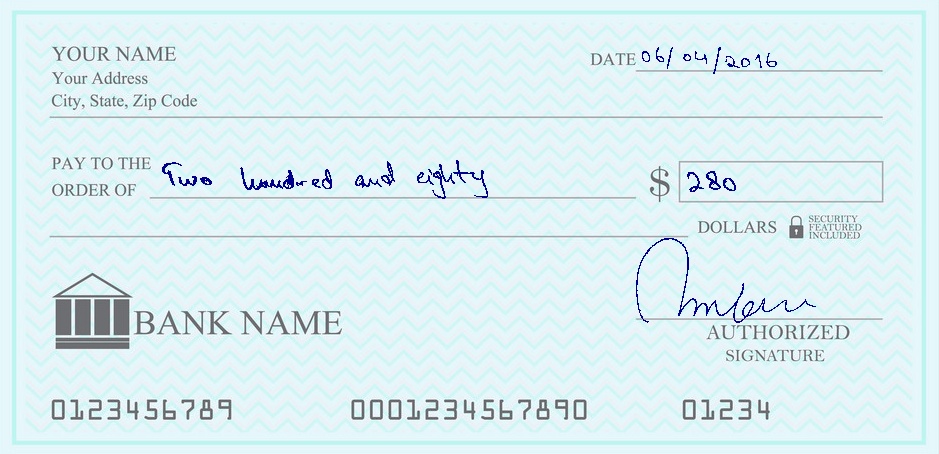 YOUR NAME
DATE 06/04/2016
Your Address
City, State, Zip Code
PAY TO THE
ORDER OF Two hundred and eighty $ 280
DOLLARS SECURITY
FEATURED
INCLUDED
BANK NAME
AUTHORIZED
SIGNATURE
0123456789 0001234567890 01234